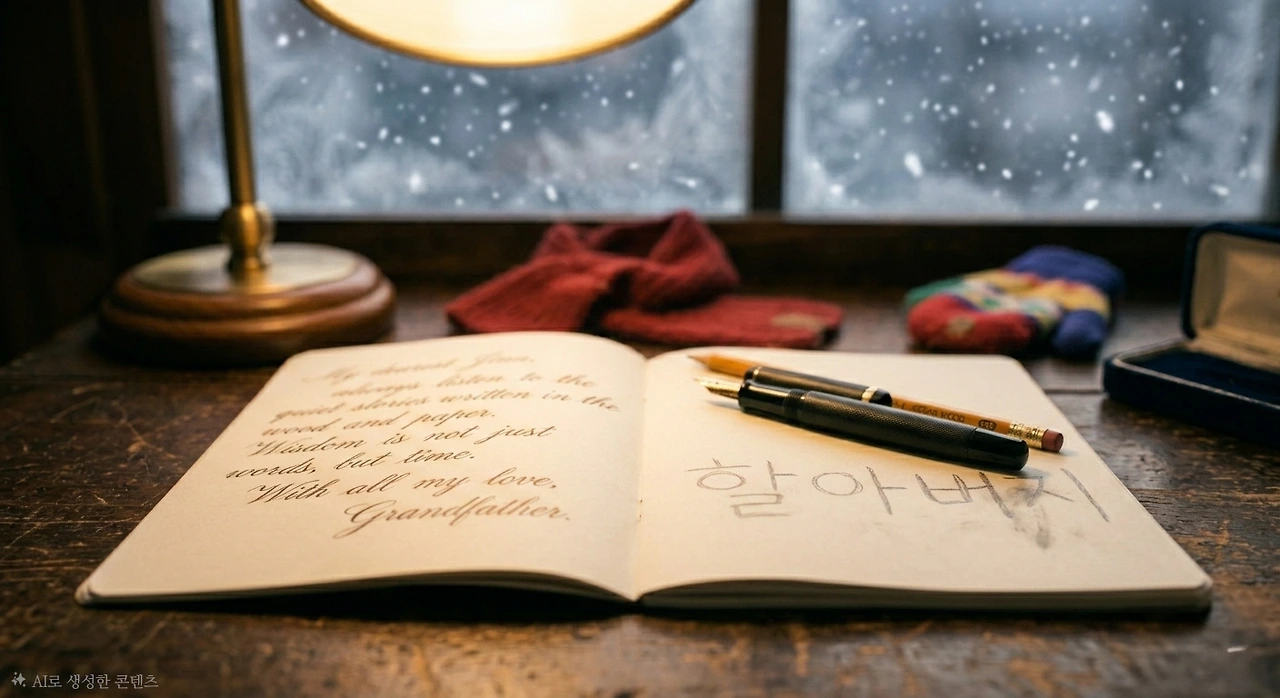 My dearest
always listen to the
quiet stories written in the
wood and paper.
Wisdom is not just
words, but time.
With all my love,
Grandfather.
할아버지
AI로 생성한 콘텐츠